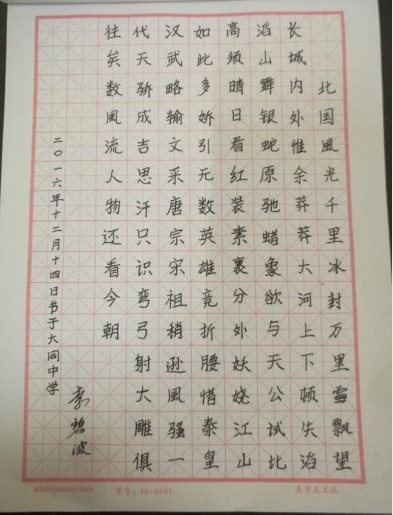 北国風光千里冰封万里雪飘望
长城内外惟余莽莽大河上下顿失滔
滔山舞银蛇原驰蜡象欲与天公试比
高须晴日看红装素裹分外妖娆江山
如此多娇引无数英雄竞折腰惜秦皇
汉武略输文采唐宗宋祖稍逊風骚一
代天骄成吉思汗只识弯弓射大雕俱
往矣数風流人物还看今朝
二〇一六年十二月十四日书于大同中学
李碧波
货号:16-0101